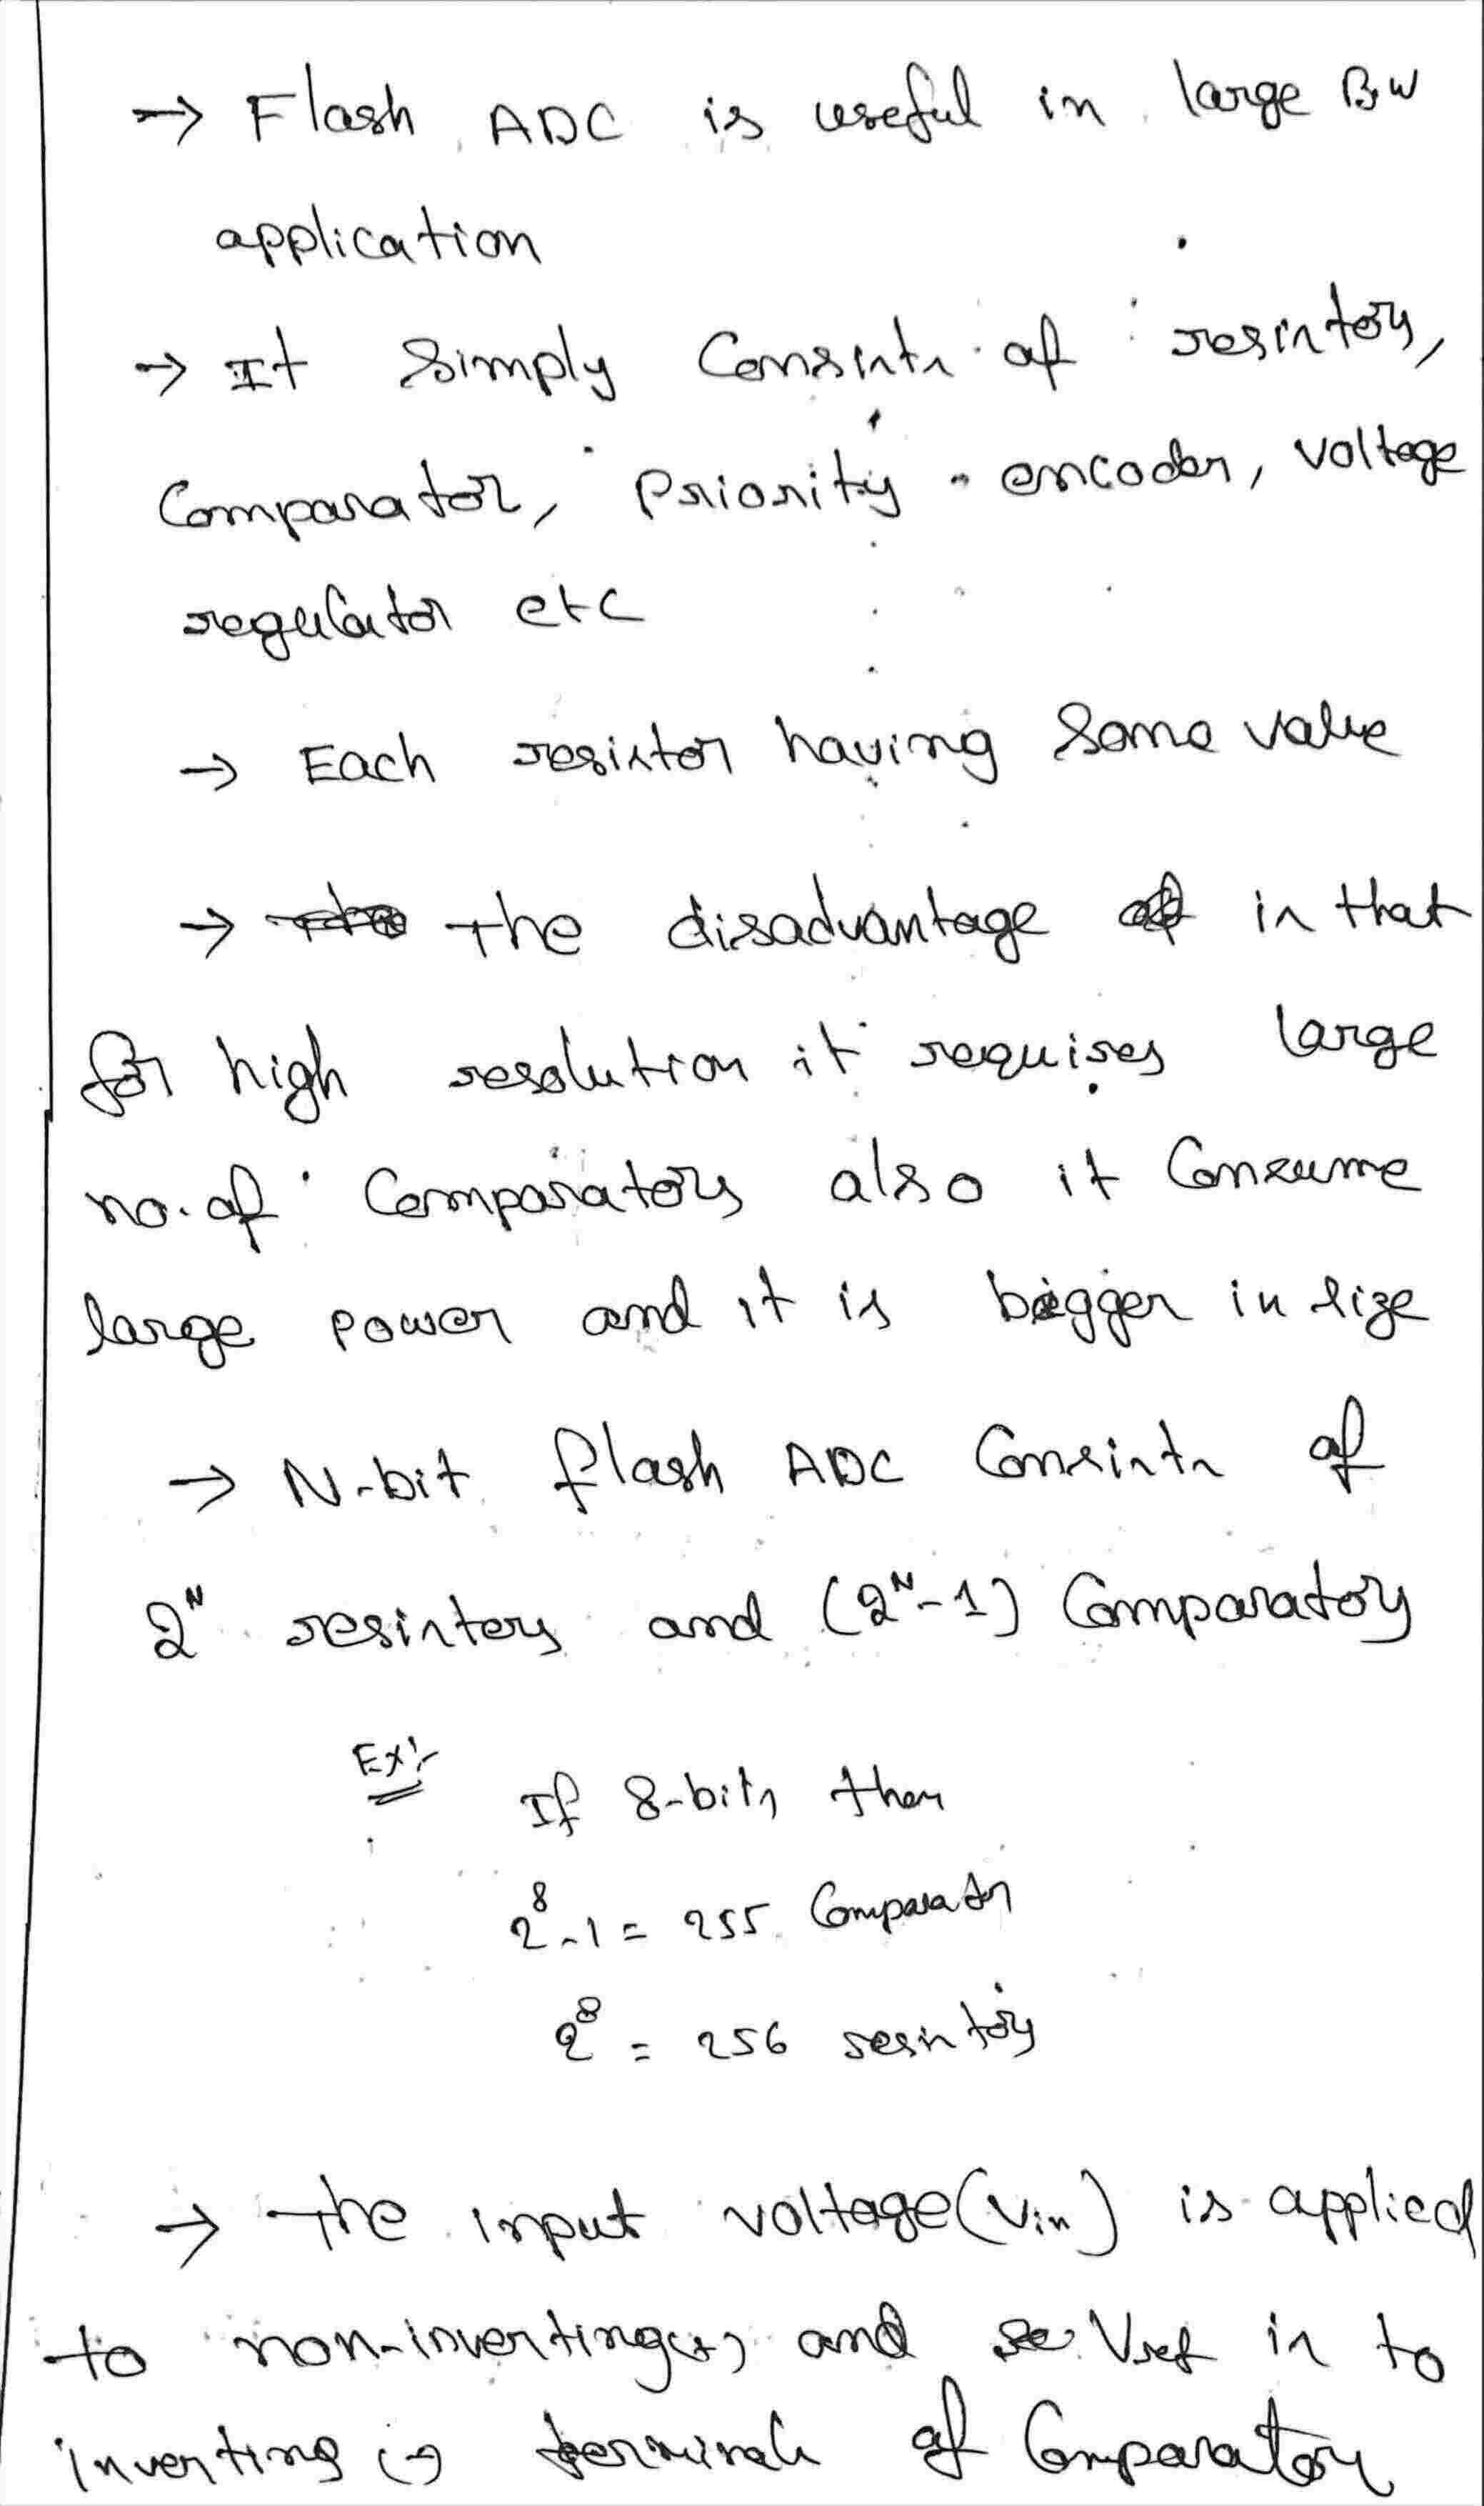 → Flash ADC is useful in large BW
application
→ It Simply Consists of resistors,
Comparator, Priority encoder, voltage
regulator etc
→ Each resistor having Same value
→ the disadvantage is that
for high resolution it requires large
no. of Comparators also it Consume
large power and it is bigger in size
→ N-bit flash ADC Consists of
2ᴺ resistors and (2ᴺ-1) Comparators
Ex:-
If 8-bits then
2⁸-1 = 255 Comparator
2⁸ = 256 resistors
→ The input voltage (Vin) is applied
to non-inverting(+) and Vref is to
inverting (-) terminals of Comparators